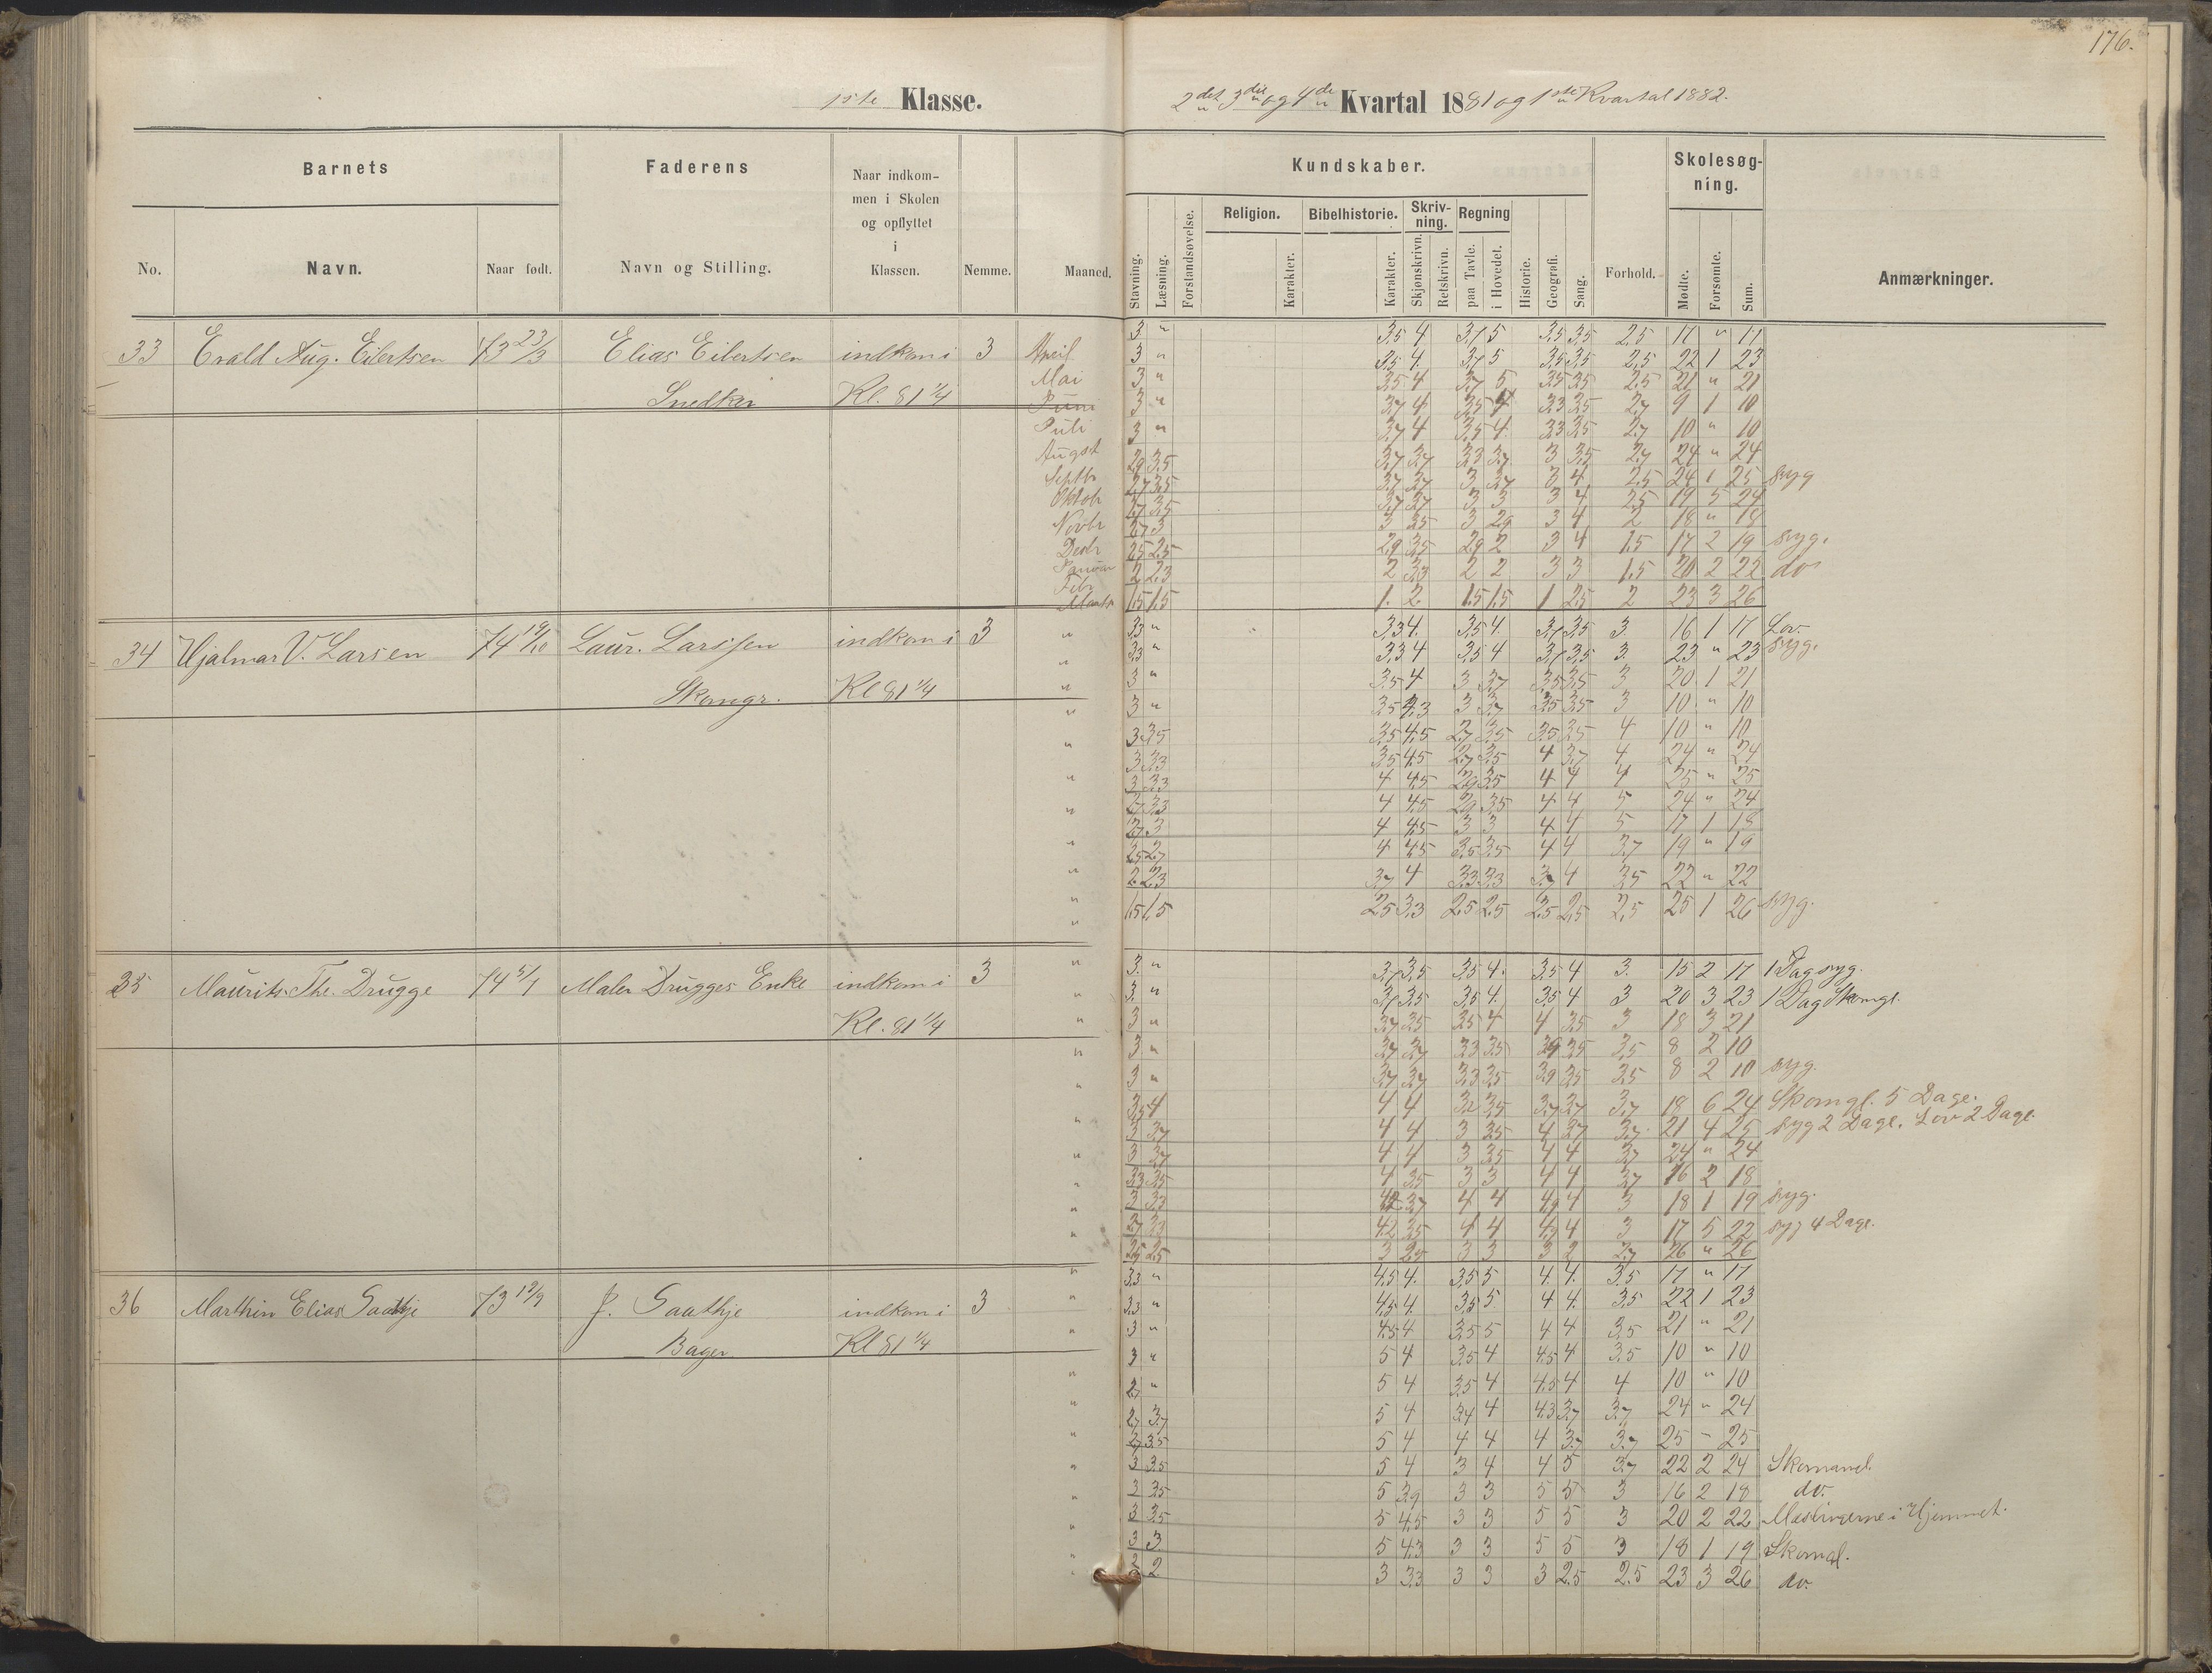 176.
1ste Klasse.
2det 3die og 4de Kvartal 1881 og 1ste Kvartal 1882.
Barnets
Faderens
Naar indkom-
men i Skolen
og opflyttet
i
Klassen.
No.
Navn.
Naar født.
Navn og Stilling.
Nemme.
Maaned.
Kundskaber.
Skolesøg-
ning.
Stavning.
Læsning.
Forstandsøvelse.
Religion.
Karakter.
Bibelhistorie.
Karakter.
Skriv-
ning.
Skjønskrivn.
Retskrivn.
Regning
paa Tavle.
i Hovedet.
Historie.
Geografi.
Sang.
Forhold.
Mødte.
Forsømte.
Sum.
Anmærkninger.
33 Evald Aug. Eilertsen 73 23/3 Elias Eilertsen indkom i 3
Snedker Kl. 81 1/4
April 3 " 3,5 4 3,7 5 3,5 3,5 2,5 17 " 17
Mai 3 " 3,5 4 3,7 5 3,5 3,5 2,5 22 1 23
Juni 3 " 3,5 4 3,7 5 3,5 3,5 2,5 21 " 21
Juli 3 " 3,7 4 3,5 4 3,3 3,5 2,7 9 1 10
August 3 " 3,7 4 3,5 4 3,3 3,5 2,7 10 " 10
Septbr 2,9 3,5 3,7 3,7 3,3 3,7 3 3,5 2,7 24 " 24
Oktob 2,7 3,5 3,7 3,7 3 3,7 3 4 2,5 24 1 25 syg
Novbr 2,7 3,5 3,7 3,7 3 3 3 4 2,5 19 5 24
Desbr 2,7 3 3 3,5 3 2,9 3 4 2 18 " 18
Januar 2,5 2,5 2,9 3,5 2,9 2 3 4 1,5 17 2 19 syg.
Febr 2 2,3 2 3,3 2 2 3 3 1,5 20 2 22 do
Marts 1,5 1,5 1. 2 1,5 1,5 1 2,5 2 23 3 26
34 Hjalmar V. Larsen 74 19/10 Laur. Larssen indkom i 3
Skomgr. Kl 81 1/4
3,3 " 3,3 4. 3,5 4. 3,7 3,5 3. 16 1 17 Lov.
3,3 " 3,3 4 3,5 4 3,7 3,5 3. 23 " 23 syg.
3 " 3,5 4 3 3,7 3,5 3,5 3 20 1 21
3 " 3,5 4,3 3 3,7 3,5 3,5 3 10 " 10
3 3,5 3,5 4,5 2,7 3,5 3,5 3,5 4 10 " 10
3 3,3 3,5 4,5 2,7 3,5 4 3,7 4 24 " 24
3 3,3 4 4,5 2,9 3,5 4 4 4 25 " 25
2,7 3,3 4 4,5 2,9 3,5 4 4 5 24 " 24
2,7 3 4 4,5 3 3 4 4 5 17 1 18
2,5 2,7 4 4,5 3,5 3,5 4 4 3,7 19 " 19
2 2,3 3,7 4 3,3 3,3 3,7 4 3,5 22 " 22
1,5 1,5 2,5 3,3 2,5 2,5 2,5 2,5 2,5 25 1 26 syg.
35 Maurits Th. Drugge 74 5/1 Maler Drugges Enke indkom i 3
Kl. 81 1/4
3. " 3,7 3,5 3,5 4. 3,5 4 3. 15 2 17 1 Dag syg.
3. " 3,7 3,5 3,5 4. 3,5 4 3 20 3 23 1 Dag Skomgl.
3 " 3,7 3,5 3,5 4 4 3,5 3 18 3 21
3 " 3,7 3,7 3,3 3,5 3,9 3,5 3,5 8 2 10
3 " 3,7 3,7 3,3 3,5 3,9 3,5 3,5 8 2 10 syg.
3,5 4 4 4 3,2 3,5 3,7 3,7 3,7 18 6 24 Skomgl. 5 Dage.
3 3,7 4 4 3 3,5 4 3,7 3,7 21 4 25 syg 2 Dage, Lov 2 Dage
3 3,7 4 4 3 3,5 4 4 3,7 24 " 24
3,3 3,5 4 3,5 3 3 4 4 3,7 16 2 18
3 3,3 4,2 3,7 4 4 4,9 4 3 18 1 19 syg.
2,7 3,3 4,2 3,5 4 4 4,9 4 3 17 5 22 syg 4 Dage.
2,5 2,5 3 2,5 3 3 3 2 2,7 26 " 26
36 Marthin Elias Saathje 73 19/9 J. Saathje indkom i 3
Bager Kl 81 1/4
3,3 " 4,5 4. 3,5 5 4. 4. 3,5 17 " 17
3,3 " 4,5 4. 3,5 5. 4 4. 3,5 22 1 23
3 " 4,5 4 3,5 5 4 4 3,5 21 " 21
3 " 5 4 3,5 4 4,5 4 3,5 10 " 10
2,7 " 5 4 3,5 4 4,5 4 4 10 " 10
2,7 3,7 5 4 3,4 4 4,3 3,7 3,7 24 " 24
2,7 3,5 5 4 4 4 4 3,7 3,7 25 - 25
3 3,5 5 4 3 4 4 5 3,7 22 2 24 Skomanl.
3 3,5 5 3,9 3 3 5 5 3 16 2 18 do.
3 3,5 5 4,5 3 3 5 5 3 20 2 22 Mæslingerne i Hjemmet.
3 3. 5 4,3 3 3 5 5 3 18 1 19 Skomal.
2 2 3 3,3 3 3 3 2,5 2,5 23 3 26 do.